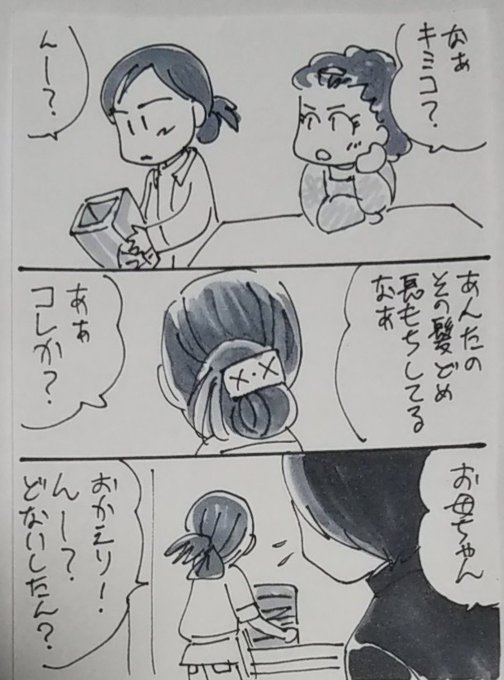 なぁ
キミコ?
んー?
あんたの
その髪どめ
長もちしてる
なぁ
あぁ
コレか?
お母ちゃん
おかえり!
んー?
どないしたん?